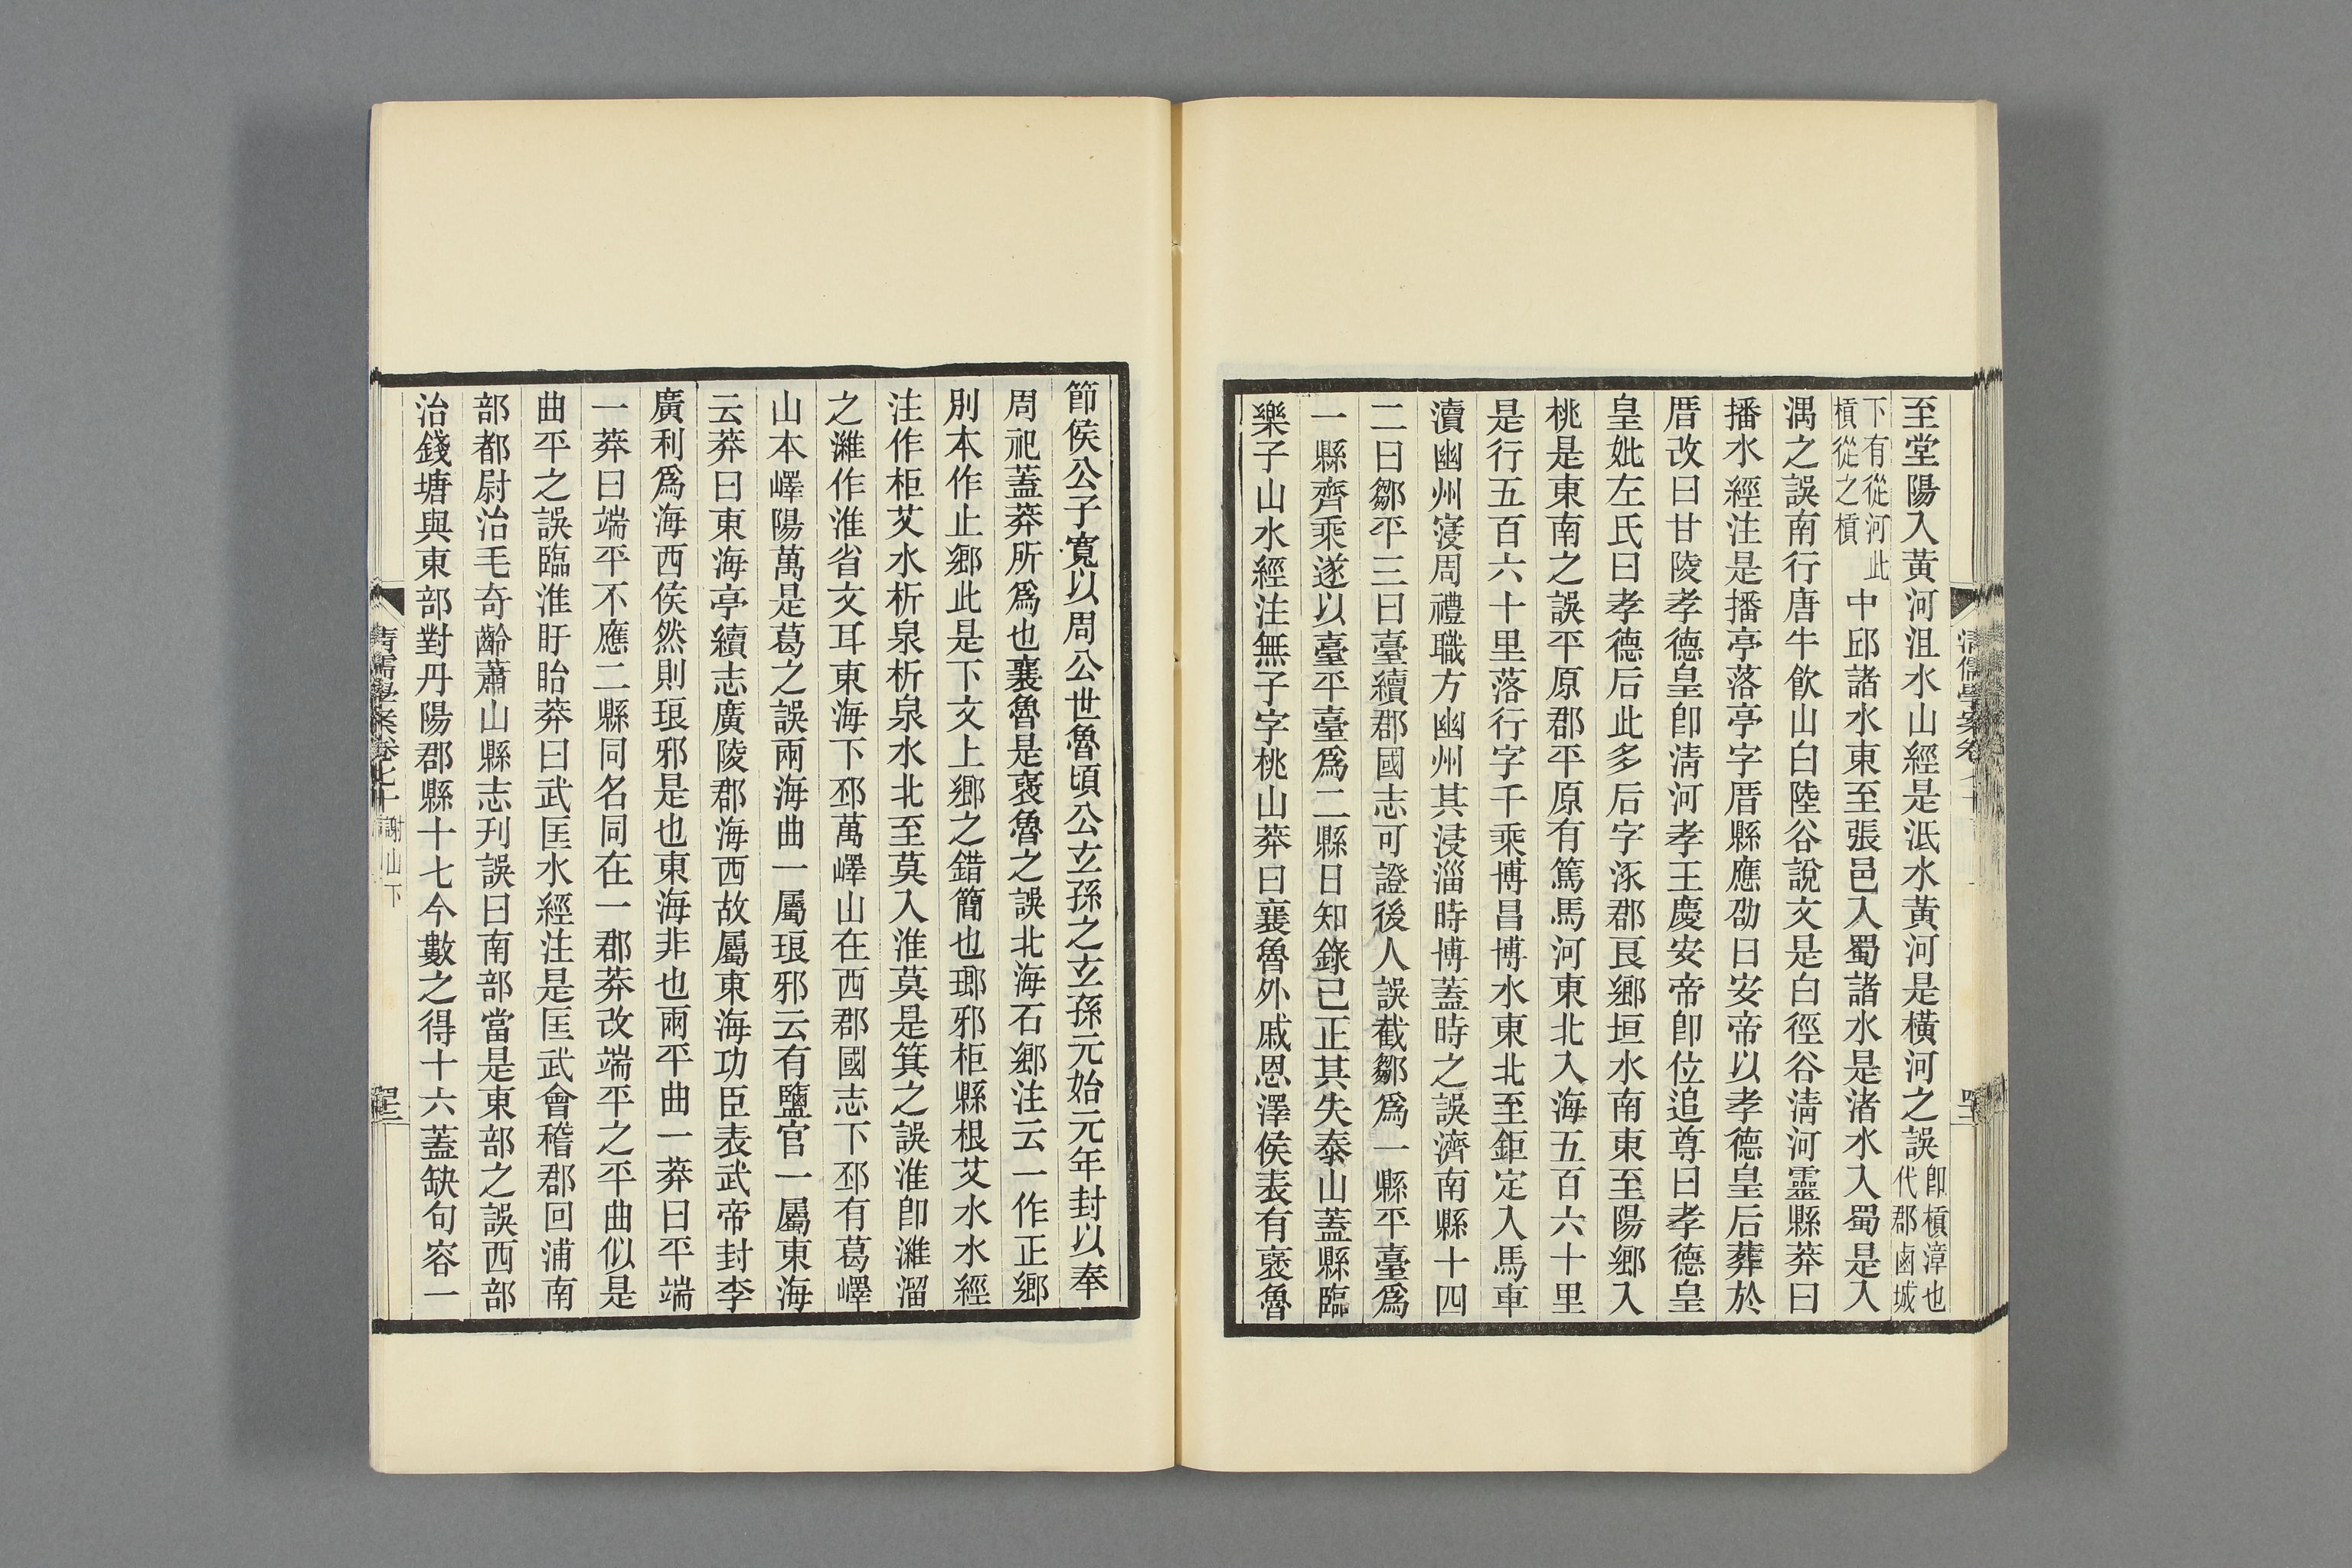 至堂陽入黃河沮水山經是泜水黃河是橫河之誤卽橫漳也代郡鹵城
下有從河此橫從之橫中邱諸水東至張邑入蜀諸水是渚水入蜀是入
湡之誤南行唐牛飮山白陸谷說文是白徑谷淸河靈縣莽曰
播水經注是播亭落亭字厝縣應劭曰安帝以孝德皇后葬於
厝改曰甘陵孝德皇卽淸河孝王慶安帝卽位追尊曰孝德皇
皇妣左氏曰孝德后此多后字涿郡良鄉垣水南東至陽鄉入
桃是東南之誤平原郡平原有篤馬河東北入海五百六十里
是行五百六十里落行字千乘博昌博水東北至鉅定入馬車
瀆幽州寖周禮職方幽州其浸淄時博蓋時之誤濟南縣十四
二曰鄒平三曰臺續郡國志可證後人誤截鄒爲一縣平臺爲
一縣齊乘遂以臺平臺爲二縣日知錄已正其失泰山蓋縣臨
樂子山水經注無子字桃山莽曰襄魯外戚恩澤侯表有襃魯
節侯公子寬以周公世魯頃公玄孫之玄孫元始元年封以奉
周祀蓋莽所爲也襄魯是襃魯之誤北海石鄉注云一作正鄉
別本作止鄉此是下文上鄉之錯簡也瑯邪柜縣根艾水水經
注作柜艾水析泉析泉水北至莫入淮莫是箕之誤淮卽濰溜
之濰作淮省文耳東海下邳萬嶧山在西郡國志下邳有葛嶧
山本嶧陽萬是葛之誤兩海曲一屬琅邪云有鹽官一屬東海
云莽曰東海亭續志廣陵郡海西故屬東海功臣表武帝封李
廣利爲海西侯然則琅邪是也東海非也兩平曲一莽曰平端
一莽曰端平不應二縣同名同在一郡莽改端平之平曲似是
曲平之誤臨淮盱眙莽曰武匡水經注是匡武會稽郡回浦南
部都尉治毛奇齡蕭山縣志刋誤曰南部當是東部之誤西部
治錢塘與東部對丹陽郡縣十七今數之得十六蓋缺句容一
淸儒學案卷七十謝山下